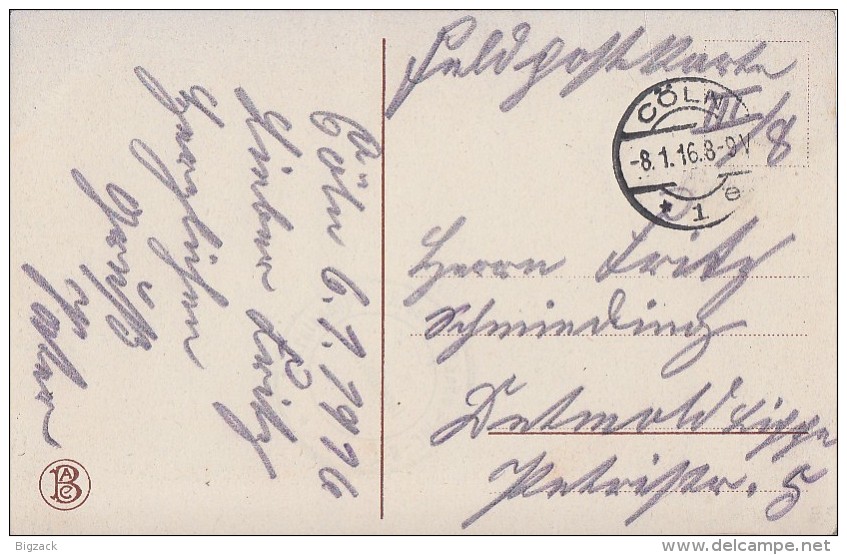 Feldpostkarte
III/8
CÖLN
-8.1.16.8-9V
* 1 e
Herrn Fritz
Schmieding
Detmold Lippe
Petristr. 5
Cöln 6.1.1916
Lieber Fritz
Herzlichen
Gruß
BAC
Bigzack
www.delcampe.net